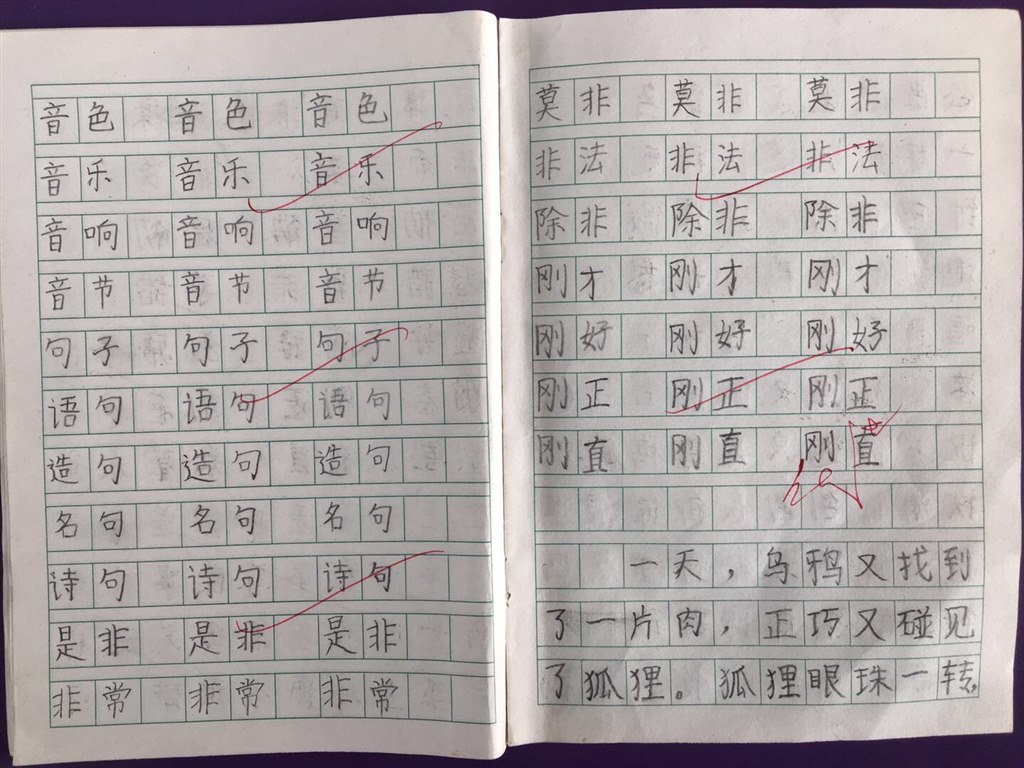 音色 音色 音色
音乐 音乐 音乐
音响 音响 音响
音节 音节 音节
句子 句子 句子
语句 语句 语句
造句 造句 造句
名句 名句 名句
诗句 诗句 诗句
是非 是非 是非
非常 非常 非常
莫非 莫非 莫非
非法 非法 非法
除非 除非 除非
刚才 刚才 刚才
刚好 刚好 刚好
刚正 刚正 刚正
刚直 刚直 刚直
一天，乌鸦又找到
了一片肉，正巧又碰见
了狐狸。狐狸眼珠一转，